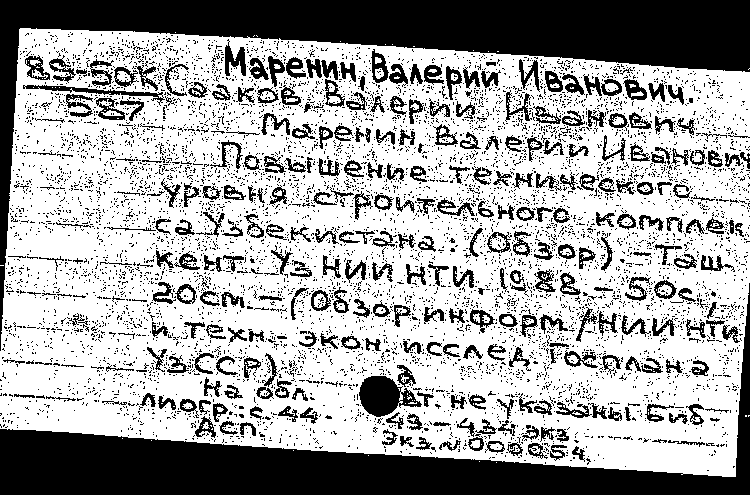 Маренин, Валерий Иванович.
89-50К Сааков, Валерий Иванович
587
Маренин, Валерий Иванович
Повышение технического
уровня строительного комплек
са Узбекистана: (Обзор). – Таш-
кент: УзНИИНТИ, 1988. – 50с.;
20см. – (Обзор. информ / НИИ НТИ
и техн.-экон исслед. Госплана
УзССР).
На обл. авт. не указаны. Биб-
лиогр.: с. 44-49. – 434 экз.
Дсп. Экз. № 000054